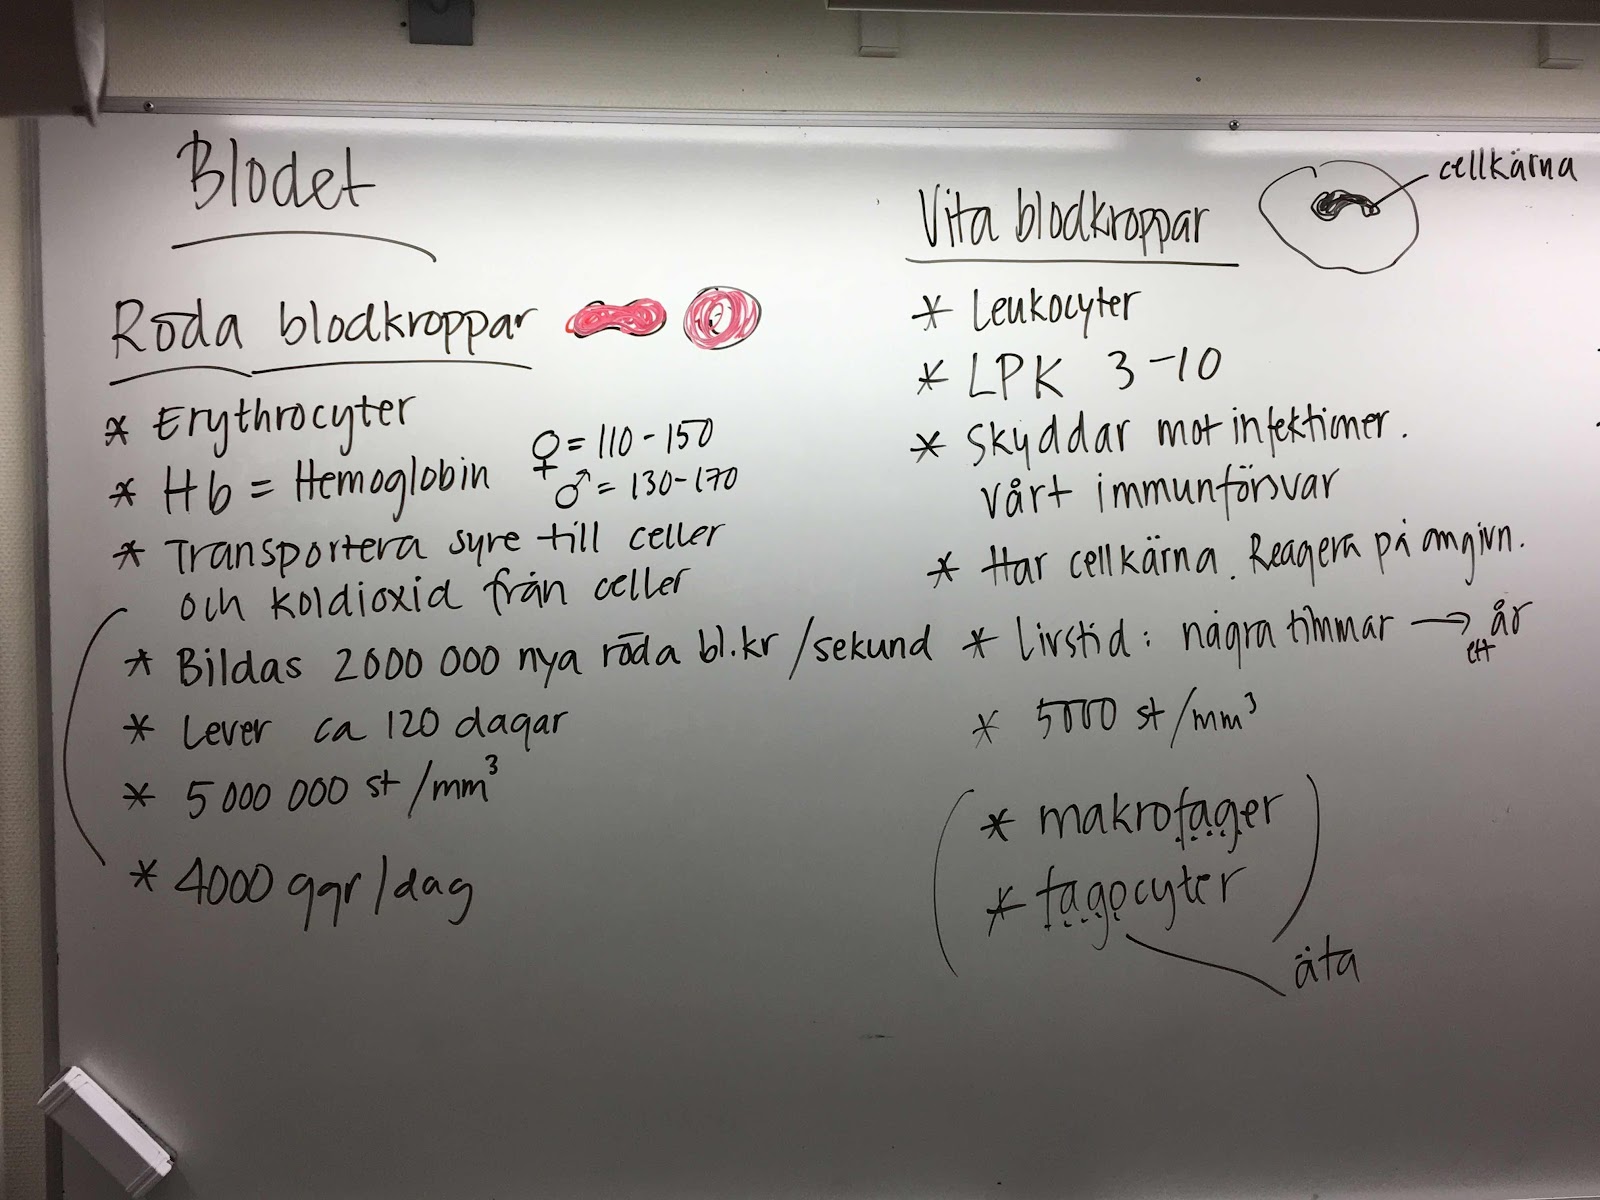 Blodet
Röda blodkroppar
* Erythrocyter
* Hb = Hemoglobin
♀ = 110-150
♂ = 130-170
* Transportera syre till celler
och koldioxid från celler
* Bildas 2000 000 nya röda bl.kr /sekund
* Lever ca 120 dagar
* 5 000 000 st /mm³
* 4000 ggr/dag
Vita blodkroppar
cellkärna
* Leukocyter
* LPK 3-10
* Skyddar mot infektioner.
vårt immunförsvar
* Har cellkärna. Reagera på omgivn.
* Livstid: några timmar → ett år
* 5000 st/mm³
(* makrofager
* fagocyter)
äta